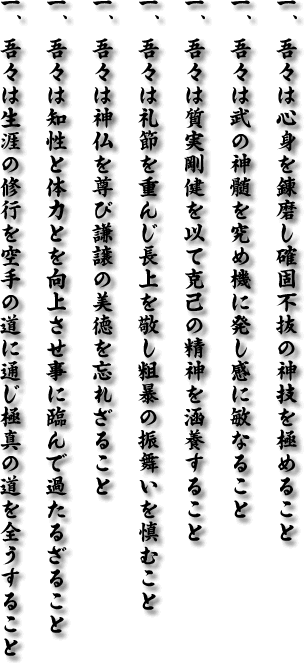 一、吾々は心身を錬磨し確固不抜の神技を極めること
一、吾々は武の神髄を究め機に発し感に敏なること
一、吾々は質実剛健を以て克己の精神を涵養すること
一、吾々は礼節を重んじ長上を敬し粗暴の振舞いを慎むこと
一、吾々は神仏を尊び謙譲の美徳を忘れざること
一、吾々は知性と体力とを向上させ事に臨んで過たるざること
一、吾々は生涯の修行を空手の道に通じ極真の道を全うすること